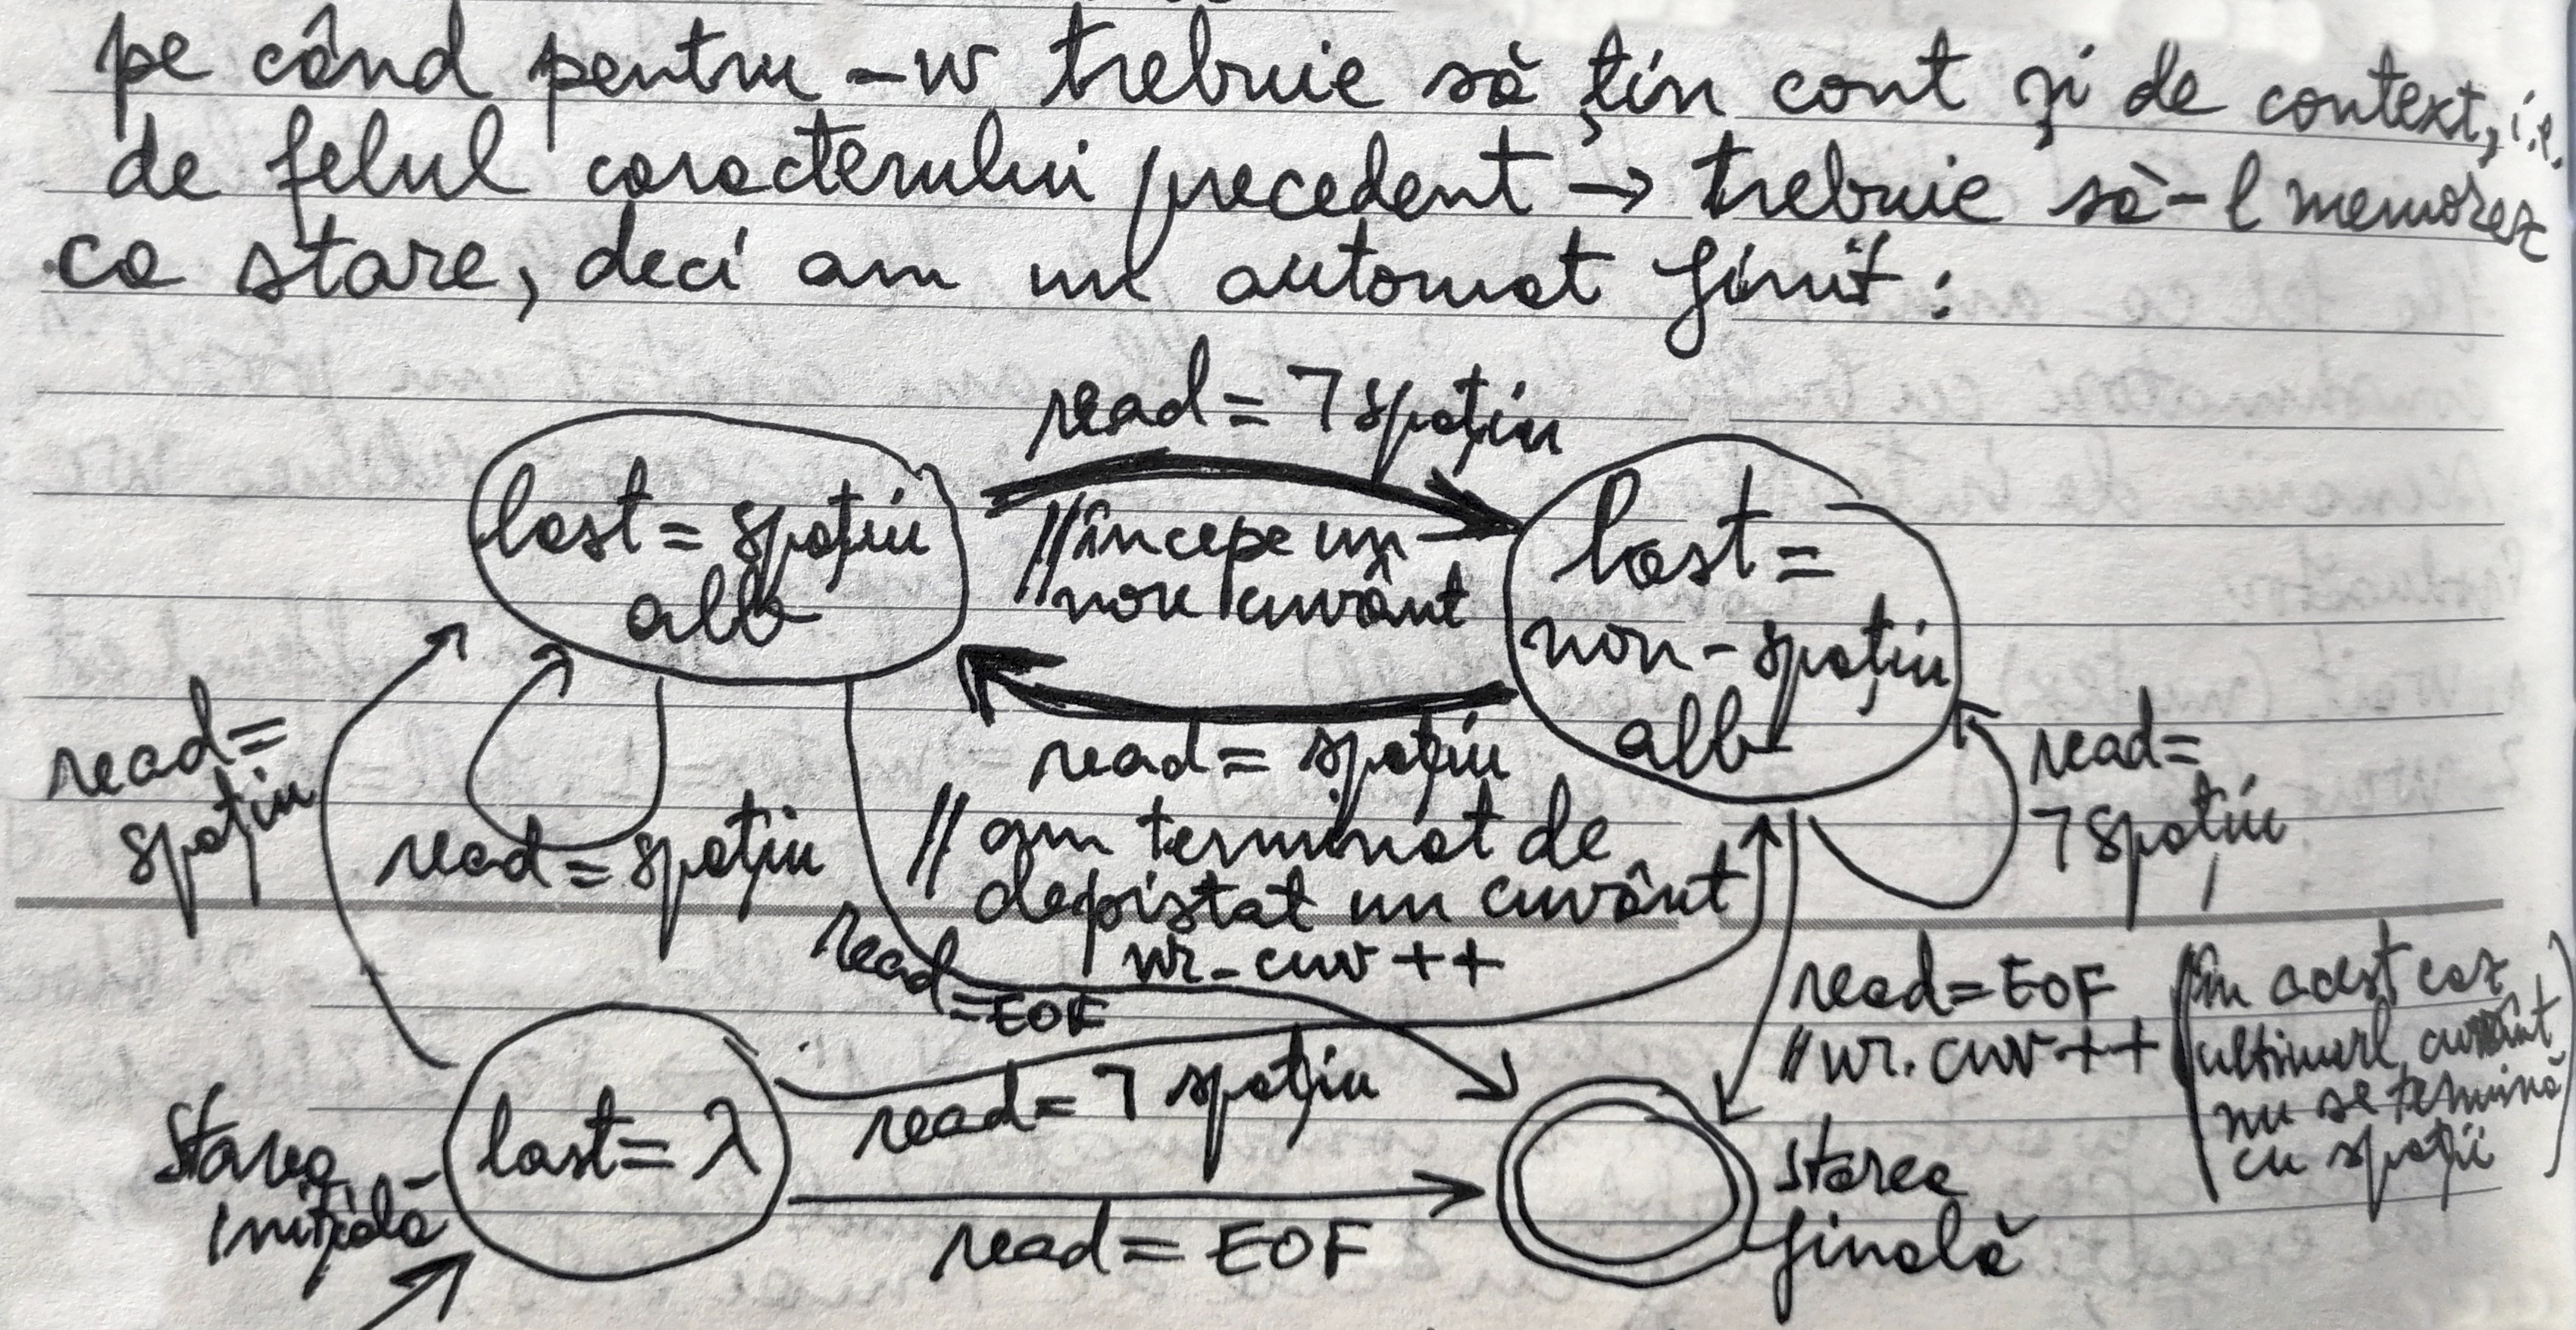 pe când pentru -w trebuie să țin cont și de context, i.e.
de felul caracterului precedent → trebuie să-l memorez
ca stare, deci am un automat finit:
read = ¬spațiu
last = spațiu
alb
// începe un
nou cuvânt
last =
non-spațiu
alb
read =
spațiu
read = spațiu
read = spațiu
// am terminat de
depistat un cuvânt
nr_cuv ++
read =
¬spațiu
read
= EOF
read = EOF
// nr. cuv ++
(în acest caz
ultimul cuvânt
nu se termină
cu spații)
read = ¬spațiu
Starea
inițială
last = λ
read = EOF
starea
finală